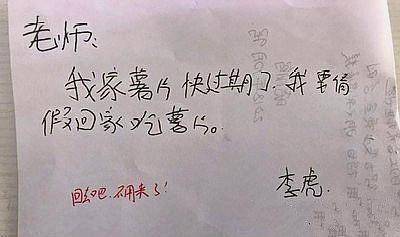 老师：
我家薯片快过期了，我要请
假回家吃薯片。
李虎.
回去吧，不用来了！